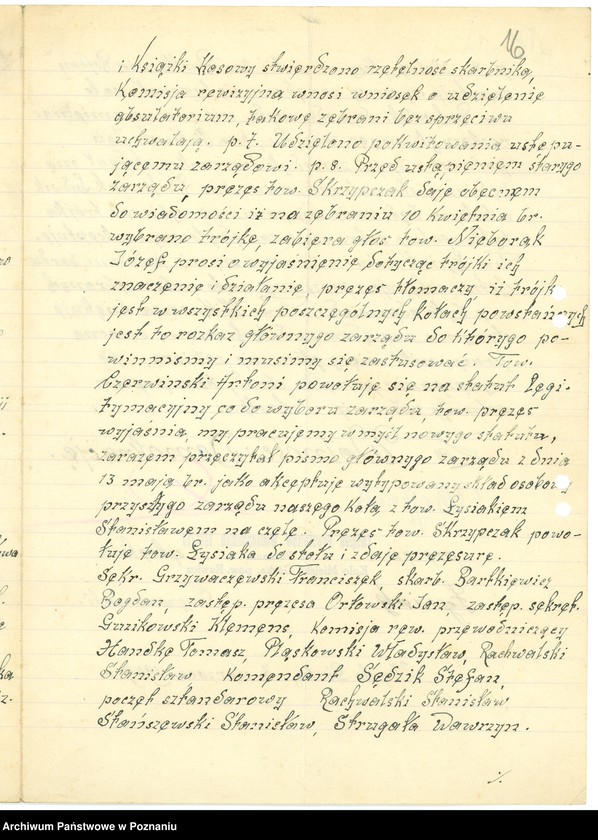 16
i Książki Kasowy stwierdzono rzętęlność skarbnika,
Komisja rewizyjna wnosi wniosęk o udzięlęnię
absulatorium, takowę zębrani bez sprzęciwu
uchwalają. p. 7. Udzięlono pokwitowania ustępu-
jącęmu zarządowi. p. 8. Przęd ustąpięnięm starygo
zarządu, pręzęs tow. Skrzypczak daję obęcnęm
do wiadomości iż na zębraniu 10 Kwiętnia br.
wybrano trójkę, zabięra głos tow. Nięborak
Józęf prosi o wyjaśnięnię dotycząc trójki ich
znaczęnię i działanię, pręzęs tłomaczy iż trójk
jęst w wszystkich poszczęgólnych Kołach powstańczych
jęst to rozkaz głównygo zarządu do którygo po-
winniśmy i musimy się zastusować. Tow.
Czerwinski Antoni powołuję się na statut Lęgi-
tymacyjny co do wyboru zarządu, tow. pręzęs
wyjaśnia my pracujęmy w myśl nowygo statutu,
zarazęm przęczytał pismo głównygo zarządu z dnia
13 maja br. jako akcęptuję wytypowany skład osobowy
przyszłygo zarządu naszęgo Koła z tow. Łysiakięm
Stanisławęm na częlę. Pręzęs tow. Skrzypczak powo-
łuję tow. Łysiaka do stołu i zdaję pręzęsurę.
Sękr. Grzywaczęwski Franciszęk skarb. Bartkięwicz
Bogdan, zastęp. pręzęsa Orłowski Jan zastęp. sękręt.
Guzikowski Klęmęns, Komisja ręw. przęwodniczący
Handkę Tomasz, Pląskowski Władysław, Rachwalski
Stanisław Komęndant Sędzik Stęfan,
poczęt sztandarowy Rachwalski Stanisław
Stańszęwski Stanisław, Strugała Wawrzyn.
./.
Archiwum Państwowe w Poznaniu